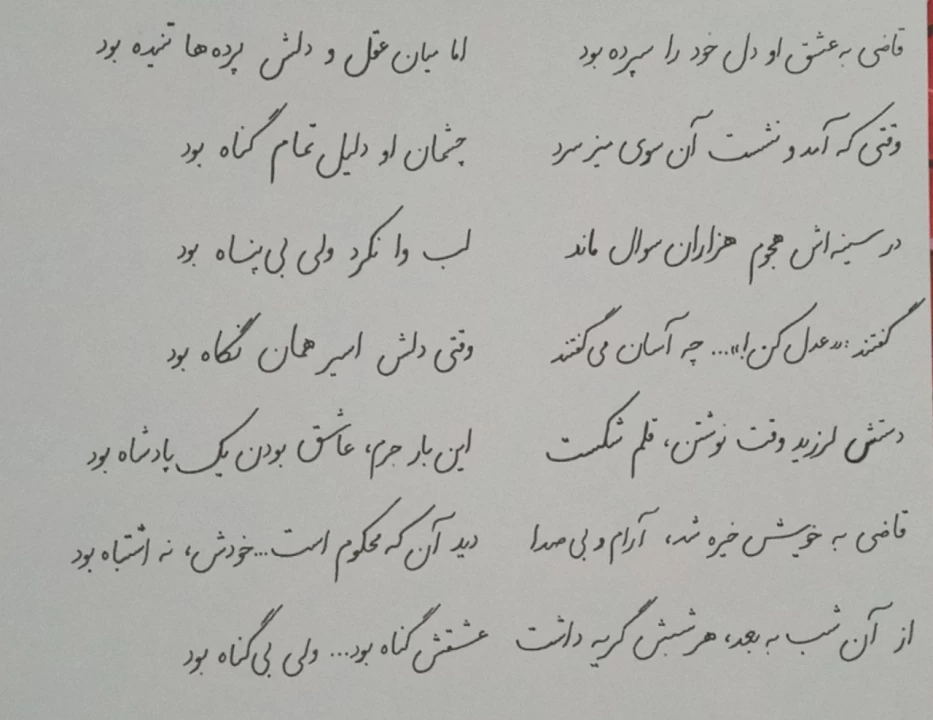 قاضی به عشق او دل خود را سپرده بود اما میان عقل و دلش پرده‌ها تنیده بود
وقتی که آمد و نشست آن سوی میز سرد چشمان او دلیل تمام گناه بود
در سینه‌اش هجوم هزاران سوال ماند لب وا نکرد ولی بی‌پناه بود
گفتند: «عدل کن!»... چه آسان می‌گفتند وقتی دلش اسیر همان نگاه بود
دستش لرزید وقت نوشتن، قلم شکست این بار جرم، عاشق بودن یک پادشاه بود
قاضی به خویش خیره شد، آرام و بی صدا دید آن که محکوم است...خودش، نه اشتباه بود
از آن شب به بعد، هر شبش گریه داشت عشقش گناه بود... ولی بی‌گناه بود